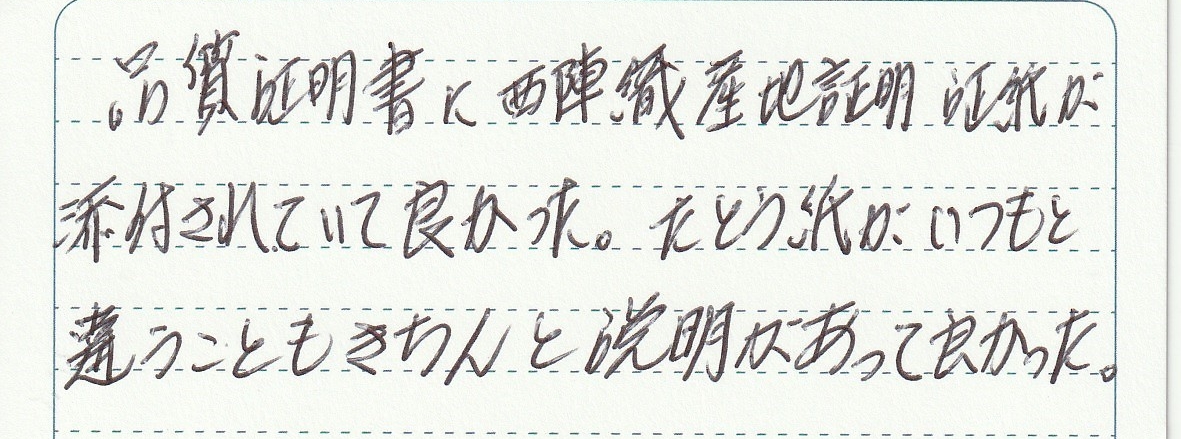 品質証明書に西陣織産地証明証紙が
添付されていて良かった。たとう紙がいつもと
違うこともきちんと説明があって良かった。